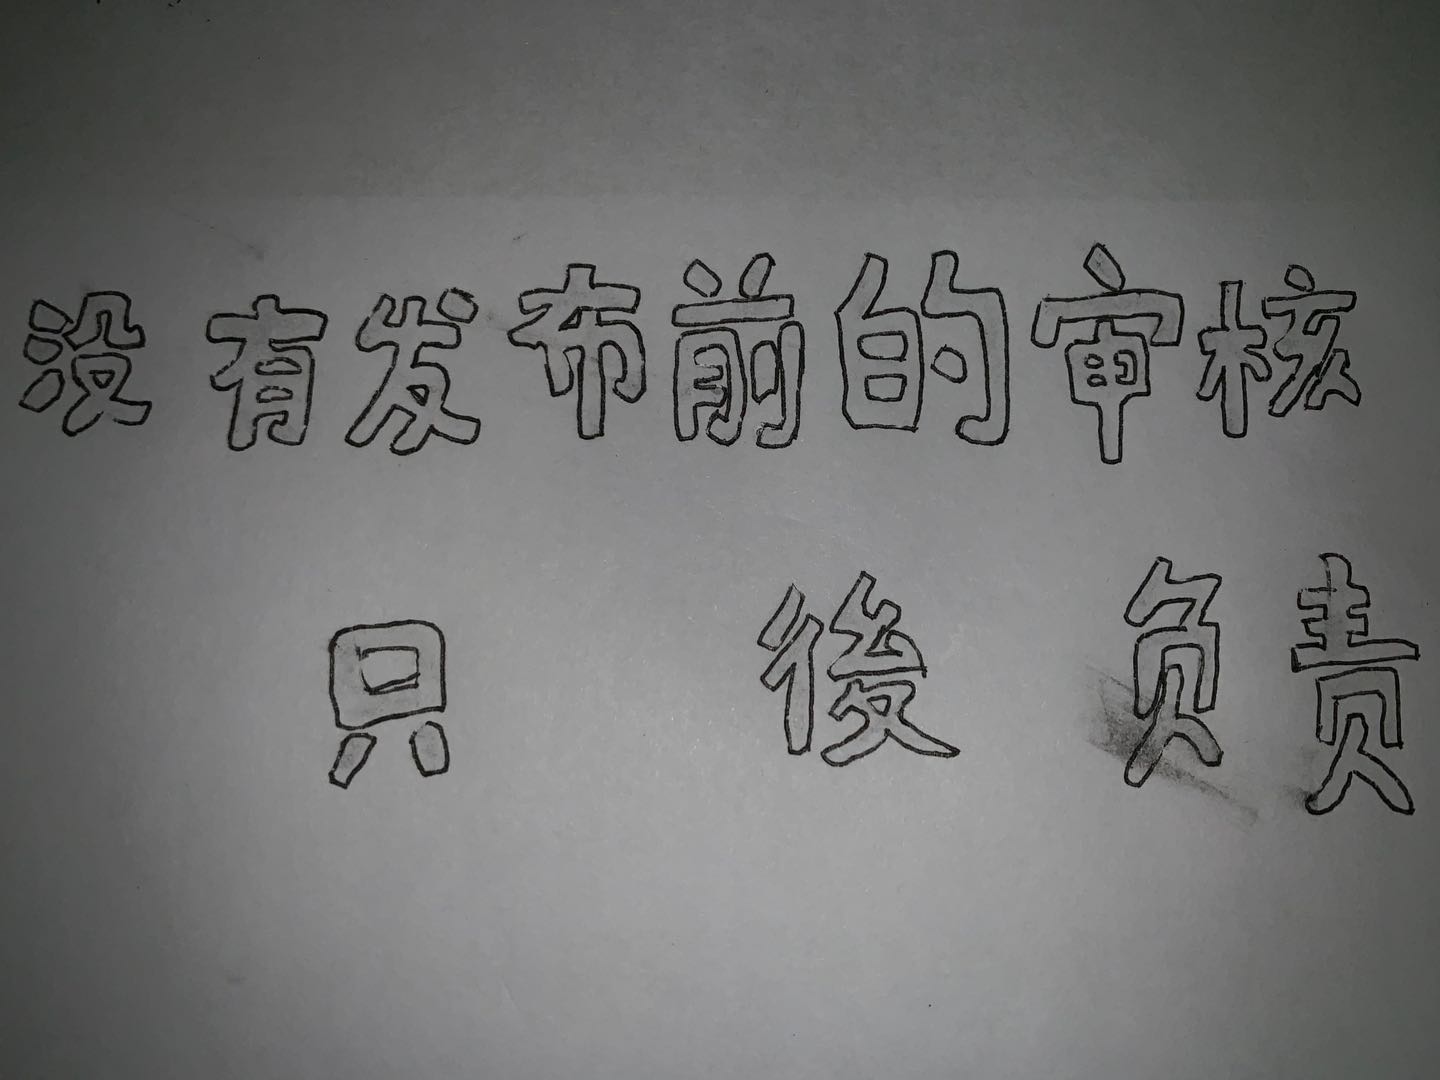 没有发布前的审核
只 後 负责